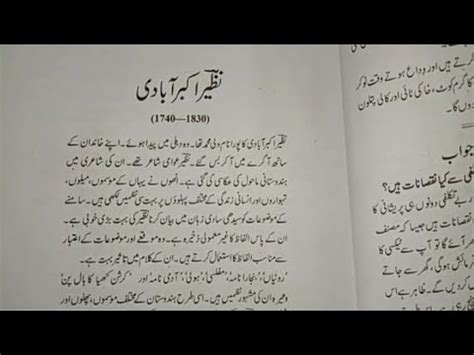 نظیر اکبر آبادی
(1740—1830)
نظیر اکبر آبادی کا پورا نام ولی محمد تھا۔ وہ دہلی میں پیدا ہوئے۔ اپنے خاندان کے
ساتھ آگرے میں آ کر بس گئے۔ نظیر عوامی شاعر تھے۔ ان کی شاعری میں
ہندوستانی ماحول کی عکاسی کی گئی ہے۔ انھوں نے یہاں کے موسموں، میلوں،
تہواروں اور انسانی زندگی کے مختلف پہلوؤں پر بہت سی نظمیں لکھیں۔ سامنے
کے موضوعات کو سیدھی سادی زبان میں بیان کرنا نظیر کی بہت بڑی خوبی ہے۔
ان کے پاس الفاظ کا غیر معمولی ذخیرہ ہے۔ وہ موقعے اور موضوعات کے اعتبار
سے مناسب الفاظ کا استعمال کرتے ہیں۔ ان کے کلام میں تاثیر بہت ہے۔
'روٹیاں'، 'بنجارا نامہ'، 'مفلسی'، 'ہولی'، 'آدمی نامہ' اور 'کرشن کنھیا کا بال پن'
وغیرہ ان کی مشہور نظمیں ہیں۔ اسی طرح ہندوستان کے مختلف موسموں، پھلوں اور
کرتے ہیں اور وداع ہوتے وقت نوکر
کا گرم کوٹ، خاکی نائی اور کالی پتلون
جواب
تکلفی سے کیا نقصانات ہیں؟
بے تکلفی دونوں ہی پریشانی کا
کرتے ہیں جیسے کہ مصنف
گا تو آپ سے ٹیکسی کا
فرمائش ہوگی، گھر سے جاتے
کردی جائے گی۔ ظاہر ہے اس